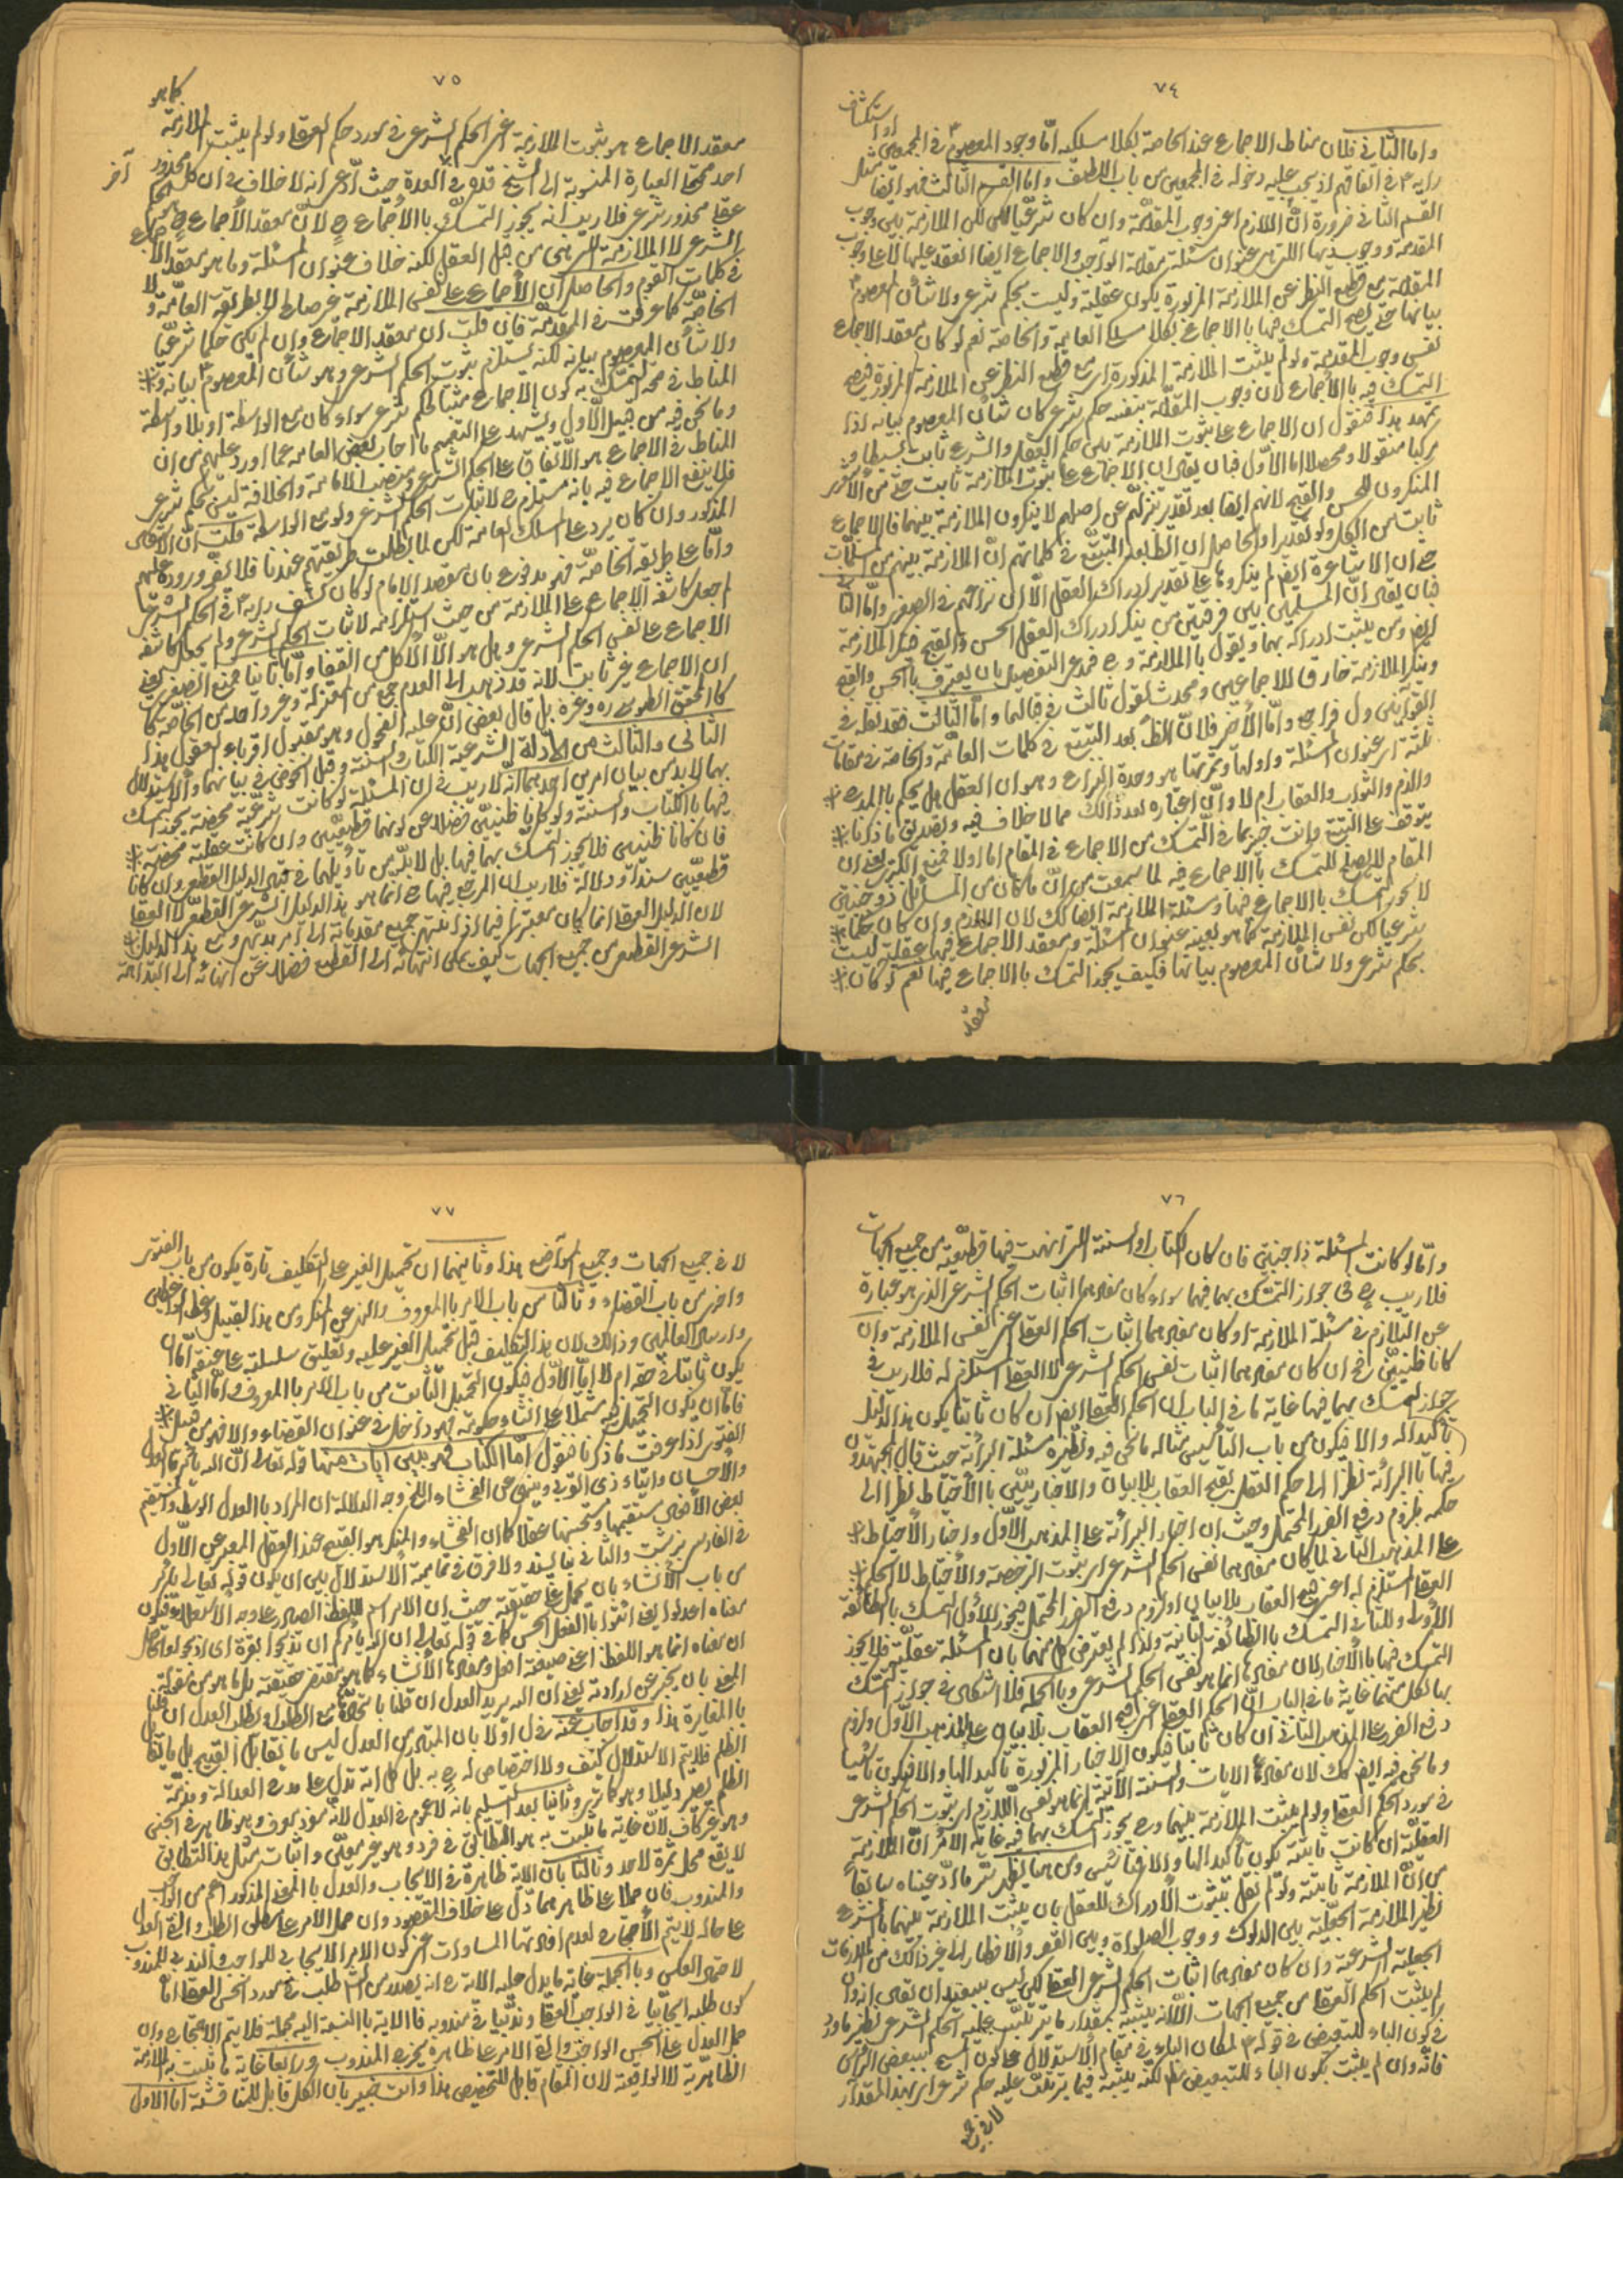 ٧٤
واما الثانى فلان مناط الاجماع عند الخاصة بكلا مسلكيه امّا وجود المعصوم فى المجمعين او استكشاف
رايه ع فى اتفاقهم اذ يجب عليه دخوله فى المجمعين من باب اللطف واما القسم الثالث فهو ايضا مثل
القسم الثانى ضرورة انّ اللازم اعنى وجوب المقدّمة وان كان شرعيّا لكن الملازمة بين وجوب
المقدمة ووجوب ذيها التى هى عنوان مسئلة مقدمة الواجب والاجماع ايضا انعقد عليها لا على وجوب
المقدمة مع قطع النظر عن الملازمة المزبورة يكون عقلية وليست بحكم شرعى ولا شأن المعصوم ع
بيانها حتى يصح التمسك فيها بالاجماع بكلا مسلكى العامة والخاصة نعم لو كان معقد الاجماع
نفس وجوب المقدمة ولو لم يثبت الملازمة المذكورة اى مع قطع النظر عن الملازمة المزبورة فيصح
التمسك فيه بالاجماع لان وجوب المقدّمة بنفسه حكم شرعى كان شأن المعصوم بيانه اذا
تمهد هذا فنقول ان الاجماع على ثبوت الملازمة بين حكم العقل والشرع ثابت بسيطا و
مركبا منقولا ومحصلا اما الاوّل فبان يقال ان الاجماع على ثبوت الملازمة ثابت حتى من الاشاعرة
المنكرون للحسن والقبح لانهم ايضا بعد تقدير تنزلهم عن اصلهم لا ينكرون الملازمة بينهما فالاجماع
ثابت من الكل ولو تقديرا والحاصل ان الظ بعد التتبّع فى كلماتهم انّ الملازمة بينهم من المسلّمات
حتى ان الاشاعرة ايضا لم ينكروها على تقدير ادراك العقل الّا ان نزاعهم فى الصغرى وامّا الثا
فبان يقال انّ المسلمين بين فرقتين من ينكر ادراك العقل الحسن والقبح فينكر الملازمة
ايضا ومن يثبت ادراكه بهما ويقول بالملازمة وح فمدعى التفصيل بان يعترف بالحسن والقبح
وينكر الملازمة خارق للاجماعين ومحدث لقول ثالث فى قبالهما وامّا الثالث فقد نقله فى
القوانين ول فراجع وامّا الاخير فلانّ الظ بعد التتبع فى كلمات العامّة والخاصة فى مقامات
ثلثة اى عنوان المسئلة وادلتها وثمرتها هو وحدة النزاع وهو ان العقل هل يحكم بالمدح
والذم والثواب والعقاب ام لا وانّ اعتباره بعد ذلك مما لا خلاف فيه وتصديق ما ذكرنا
يتوقف على التتبع وانت خبير بما فى التمسك من الاجماع فى المقام اما اولا فمنع الكبرى لان
المقام لا يصلح للتمسك بالاجماع فيه لما سمعت من انّ ما كان من المسائل ذو جنبتين
لا يجوز التمسك بالاجماع فيها ومسئلة الملازمة ايضا كك لان اللازم وان كان حكما
شرعيا لكن نفس الملازمة كما هو بعينه عنوان المسئلة ومعقد الاجماع فيها عقلية ليست
بحكم شرعى ولا شأن المعصوم بيانها فكيف يجوز التمسك بالاجماع فيها نعم لو كان
معقد
٧٥
معقد الاجماع هو ثبوت الملازمة اعنى الحكم الشرعى فى مورد حكم العقل ولو لم يثبت الملازمة كما هو
احد محتملى العبارة المنسوبة الى الشيخ قده فى العدة حيث ادّعى انه لا خلاف فى ان كل محذور
عقلى محذور شرعى فلا ريب انه يجوز التمسّك بالاجماع ح لانّ معقد الاجماع ح هو الحكم
الشرعى لا الملازمة التى هى من قبل العقل لكنه خلاف عنوان المسئلة وما هو معقد الاجماع
فى كلمات القوم والحاصل ان الاجماع على نفس الملازمة غير صالح لا بطريقة العامّة و لا
الخاصّة كما عرفت فى المقدمة فان قلت ان معقد الاجماع وان لم يكن حكما شرعيّا
ولا شأن المعصوم بيانه لكنه يستلزم ثبوت الحكم الشرعى وهو شأن المعصوم بيانه و
المناط فى صحة التمسّك به كون الاجماع مثبتا لحكم شرعى سواء كان مع الواسطة او بلا واسطة
وما نحن فيه من قبيل الاول ويشهد على التعميم ما اجاب بعض العامه عما اورد عليهم من ان
المناط فى الاجماع هو الاتفاق على الحكم الشرعى ونصب الامامة والخلافة ليس بحكم شرعى
فلا ينفع الاجماع فيه بانه مستلزم لاثبات الحكم الشرعى ولو مع الواسطة قلت انّ الاشكال
المذكور وان كان يرد على مسلك العامة لكن لما بطلت طريقتهم عندنا فلا يضر وروده عليهم
وامّا على طريقة الخاصّة فهو مدفوع بان مقصد الامام لو كان كشف رايه ع فى الحكم الشرعى
لم يجعل كاشفه الاجماع على الملازمة من حيث استلزامه لاثبات الحكم الشرعى ولم يجعل كاشفه
الاجماع على نفس الحكم الشرعى وهل هو الّا الاكل من القفا وامّا ثانيا فمنع الصغرى يعنى
ان الاجماع غير ثابت لانه قد ذهب الى العدم جمع من المعتزلة وغير واحد من الخاصّة كما
كالمحقق الطوسى ره وغيره بل قال بعض انّ عليه الفحول وهو مقبول اقرباء العقول هذا
الثانى والثالث من الادلّة الشرعية الكتاب والسنة وقبل الخوض فى بيانهما والاستدلال
بهما لابدّ من بيان امرين احدهما انّه لا ريب فى ان المسئلة لو كانت شرعيّة محضة يجوز التمسك
فيها بالكتاب والسنة ولو كانا ظنيين فضلا عن كونهما قطعيّين وان كانت عقلية محضة
فان كانا ظنيين فلا يجوز التمسّك بهما فيها بل لا بدّ من تأويلهما فى قبال الدليل القطعى وان كانا
قطعيّين سندا ودلالة فلا ريب ان المرجع فيها ح انما هو هذا الدليل الشرعى القطعى لا العقل
لان الدليل العقلى انما كان معتبرا فيما اذا انتهى جميع مقدماته الى امر بديهى ومع هذا الدليل
الشرعى القطعى من جميع الجهات كيف يمكن انتهائه الى القطع فضلا عن انتهائه الى البداهة
آخر
٧٦
وامّا لو كانت المسئلة ذا جنبتين فان كان الكتاب والسنة التى نهضت فيها قطعيّة من جميع الجهات
فلا ريب ح فى جواز التمسّك بهما فيها سواء كان مفادهما اثبات الحكم الشرعى الذى هو عبارة
عن التلازم فى مسئلة الملازمة او كان مفادهما اثبات الحكم العقلى اعنى نفس الملازمة وان
كانا ظنيين فح ان كان مفادهما اثبات نفس الحكم الشرعى لا العقلى المستلزم له فلا ريب فى
جواز التمسك بهما فيها غاية ما فى الباب ان الحكم العقلى ايضا ان كان ثابتا يكون هذا الدليل
تأكيدا له والا فيكون من باب التأسيس مثاله ما نحن فيه ونظيره مسئلة البرائة حيث قال المجتهدون
فيها بالبرائة نظرا الى حكم العقل بقبح العقاب بلا بيان والاخباريّين بالاحتياط نظرا الى
حكمه بلزوم دفع الضرر المحتمل وحيث ان اخبار البرائة على المذهب الاوّل واخبار الاحتياط
على المذهب الثانى لما كان مفادهما نفس الحكم الشرعى اى ثبوت الرخصة والاحتياط لا الحكم
العقلى المستلزم له اعنى قبح العقاب بلا بيان او لزوم دفع الضرر المحتمل فيجوز للاول التمسك بالطائفة
الاولى وللثانى التمسك بالطائفة الثانية ولذا لم يعترض كل منهما بان المسئلة عقليّة فلا يجوز
التمسك فيها بالاخبار لان مفادها انما هو نفس الحكم الشرعى وبالجملة فلا اشكال فى جواز التمسك
بها لكل منهما غاية ما فى الباب انّ الحكم العقلى اعنى قبح العقاب بلا بيان على المذهب الاوّل ولزوم
دفع الضرر على المذهب الثانى ان كان ثابتا فيكون الاخبار المزبورة تأكيدا لها والا فيكون تأسيسا
وما نحن فيه ايضا كك لان مفاد الايات والسنة الآتية انما هو نفس اللازم اى ثبوت الحكم الشرعى
فى مورد الحكم العقلى ولو لم يثبت الملازمة بينهما وح يجوز التمسك بهما فيه غاية الامر انّ الملازمة
العقليّة ان كانت ثابتة يكون تأكيدا لها والا فتأسيس ومن هنا يظهر سرّ ما ادّعيناه سابقا
من انّ الملازمة ثابتة ولو لم نقل بثبوت الادراك للعقل بان يثبت الملازمة بينهما بالشرع
نظير الملازمة الجعليّة بين الدلوك ووجوب الصلواة وبين القصر والافطار الى غير ذلك من الملازمات
الجعلية الشرعية وان كان مفادهما اثبات الحكم الشرعى العقلى لكن ليس ببعيد ان يقال انه وان
لم يثبت الحكم العقلى من جميع الجهات الّا انه يثبته بمقدار ما يترتّب عليه الحكم الشرعى نظير ما ورد
فى كون الباء للتبعيض فى قوله ع لمكان الباء فى مقام الاستدلال على كون المسح ببعض الرأس
فانّه وان لم يثبت كون الباء للتبعيض مط لكنّه يثبته فيما يترتّب عليه حكم شرعى اى بهذا المقدار
لا فى جميع
٧٧
لا فى جميع الجهات وجميع المواضع هذا وثانيهما ان تحميل الغير على التكليف تارة يكون من باب الفتوى
واخرى من باب القضاء وثالثا من باب الامر بالمعروف والنهى عن المنكر ومن هذا القبيل وعظ الواعظين
وارسال العالمين وذلك لان هذا التكليف قبل تحميل الغير عليه وتعليق سلسلته على عنقه امّا ان
يكون ثابتا فى حقه ام لا امّا الاوّل فيكون التحميل الثابت من باب الامر بالمعروف وامّا الثانى
فامّا ان يكون التحميل فيه مشتملا على انشاء حكومته فهو داخل فى عنوان القضاء والا فهو من قبيل
الفتوى اذا عرفت ما ذكرنا فنقول امّا الكتاب فهو بين آيات منها قوله تعالى انّ الله يأمر بالعدل
والاحسان وايتاء ذى القربى وينهى عن الفحشاء الخ وجه الدلالة ان المراد بالعدل الوسط والمستقيم
بعض الافعال مستقيمها ومستحسنها عقلا كما ان الفحشاء والمنكر هو القبيح عند العقل المعبر عن الاوّل
فى الفارسى بزشت والثانى بناپسند ولا فرق فى تماميّة الاستدلال بين ان يكون قوله تعالى يأمر
من باب الانشاء بان يحمل على حقيقته حيث ان الامر اسم للفظ الصادر على وجه الاستعلاء فيكون
معناه اعدلوا يعنى ائتوا بالفعل الحسن كما فى قوله تعالى ان الله يأمركم ان تذبحوا بقرة اى اذبحوا والحاصل
ان معناه انما هو اللفظ اعنى صيغة افعل ومفادها الانشاء كما هو مقتضى حقيقته بل ما هو من مقولة
المعنى بان يخبر عن ارادته يعنى ان الله يريد العدل ان قلنا باتحادها مع الطلب او يطلب العدل ان قلنا
بالمغايرة هذا وقد اجاب عنه فى ل اولا بان المتبادر من العدل ليس ما يقابل القبيح بل ما يقابل
الظلم فلا يتم الاستدلال كيف ولا اختصاص له ح به بل كل اية تدل على مدح العدالة ومذمّة
الظلم يصير دليلا وهو كما ترى وثانيا بعد التسليم بانه لا عموم فى العدل لانّه مفرد معرف وهو ظاهر فى الجنس
وهو غير كاف لانّ غاية ما يثبت به هو التطابق فى فرد وهو غير معيّن واثبات مثل هذا التطابق
لا يقع محل ثمرة لاحد وثالثا بان الاية ظاهرة فى الايجاب والعدل بالمعنى المذكور اعم من الواجب
والمندوب فان حملا على ظاهرهما دلّ على خلاف المقصود وان حمل الامر على مطلق الطلب وابقى العدل
على حاله لا يتم الاحتجاج لعدم افادتها المساوات اعنى كون الامر الايجابى للواجب والندبى للمندوب
لاحتمال العكس وبالجملة غاية ما يدل عليه الاية ح انه يصدر من الشرع طلب فى مورد الحسن العقلى امّا
كون طلبه ايجابيا فى الواجب العقلى وندبيا فى مندوبه فالاية بالنسبة اليه مجملة فلا يتم الاحتجاج وان
حمل العدل على الحسن الواجب وابقى الامر على ظاهره يخرج المندوب ورابعا غاية ما يثبت به الملازمة
الظاهريّة لا الواقعيّة لان المقام قابل للتخصيص هذا وانت خبير بان الكل قابل للمناقشة امّا الاول